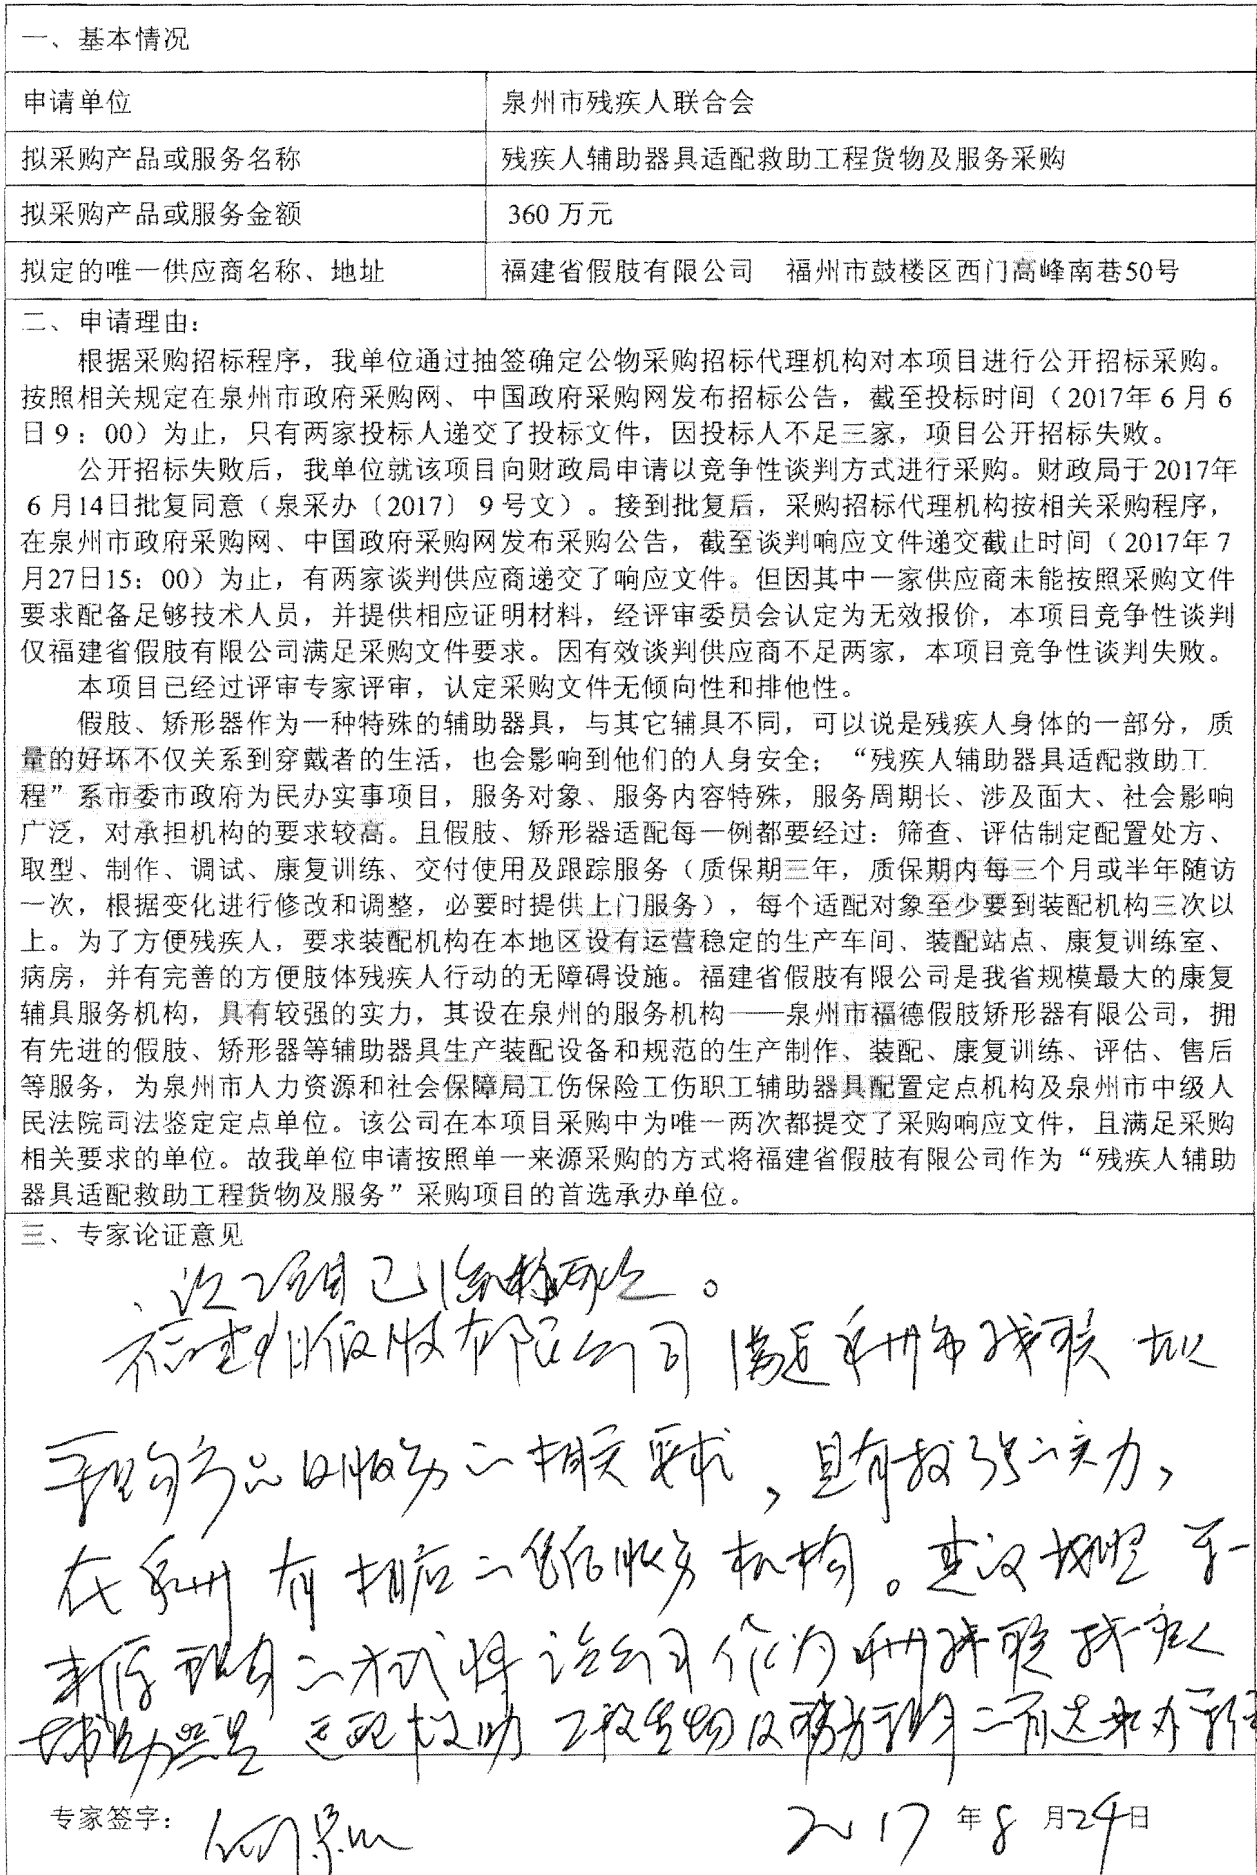 一、基本情况
申请单位 泉州市残疾人联合会
拟采购产品或服务名称 残疾人辅助器具适配救助工程货物及服务采购
拟采购产品或服务金额 360 万元
拟定的唯一供应商名称、地址 福建省假肢有限公司 福州市鼓楼区西门高峰南巷50号
二、申请理由：
根据采购招标程序，我单位通过抽签确定公物采购招标代理机构对本项目进行公开招标采购。
按照相关规定在泉州市政府采购网、中国政府采购网发布招标公告，截至投标时间（2017年 6 月 6
日 9：00）为止，只有两家投标人递交了投标文件，因投标人不足三家，项目公开招标失败。
公开招标失败后，我单位就该项目向财政局申请以竞争性谈判方式进行采购。财政局于2017年
6 月14日批复同意（泉采办〔2017〕9 号文）。接到批复后，采购招标代理机构按相关采购程序，
在泉州市政府采购网、中国政府采购网发布采购公告，截至谈判响应文件递交截止时间（2017年 7
月27日15：00）为止，有两家谈判供应商递交了响应文件。但因其中一家供应商未能按照采购文件
要求配备足够技术人员，并提供相应证明材料，经评审委员会认定为无效报价，本项目竞争性谈判
仅福建省假肢有限公司满足采购文件要求。因有效谈判供应商不足两家，本项目竞争性谈判失败。
本项目已经过评审专家评审，认定采购文件无倾向性和排他性。
假肢、矫形器作为一种特殊的辅助器具，与其它辅具不同，可以说是残疾人身体的一部分，质
量的好坏不仅关系到穿戴者的生活，也会影响到他们的人身安全；“残疾人辅助器具适配救助工
程”系市委市政府为民办实事项目，服务对象、服务内容特殊，服务周期长、涉及面大、社会影响
广泛，对承担机构的要求较高。且假肢、矫形器适配每一例都要经过：筛查、评估制定配置处方、
取型、制作、调试、康复训练、交付使用及跟踪服务（质保期三年，质保期内每三个月或半年随访
一次，根据变化进行修改和调整，必要时提供上门服务），每个适配对象至少要到装配机构三次以
上。为了方便残疾人，要求装配机构在本地区设有运营稳定的生产车间、装配站点、康复训练室、
病房，并有完善的方便肢体残疾人行动的无障碍设施。福建省假肢有限公司是我省规模最大的康复
辅具服务机构，具有较强的实力，其设在泉州的服务机构——泉州市福德假肢矫形器有限公司，拥
有先进的假肢、矫形器等辅助器具生产装配设备和规范的生产制作、装配、康复训练、评估、售后
等服务，为泉州市人力资源和社会保障局工伤保险工伤职工辅助器具配置定点机构及泉州市中级人
民法院司法鉴定定点单位。该公司在本项目采购中为唯一两次都提交了采购响应文件，且满足采购
相关要求的单位。故我单位申请按照单一来源采购的方式将福建省假肢有限公司作为“残疾人辅助
器具适配救助工程货物及服务”采购项目的首选承办单位。
三、专家论证意见
该项目已流标两次。
福建省假肢有限公司满足泉州市残联拟
采购产品及服务的相关要求，具有较强的实力，
在泉州有相应的售后服务机构。建议按照单一
来源采购的方式将该公司作为泉州残联残疾人
辅助器具适配救助工程货物及服务采购的首选承办单位
专家签字： 2017 年 8 月 24 日